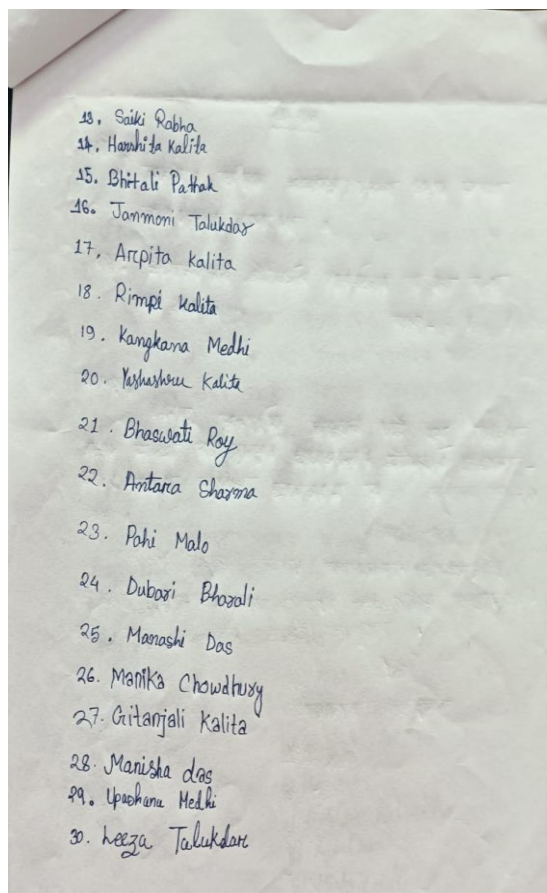 13. Saiki Rabha
14. Harshita Kalita
15. Bhitali Pathak
16. Janmoni Talukdar
17, Arpita Kalita
18. Rimpi Kalita
19. Kangkana Medhi
20. Yashashree Kalita
21. Bhaswati Roy
22. Antara Sharma
23. Pahi Malo
24. Dubari Bharali
25. Manashi Das
26. Manika Chowdhury
27. Gitanjali Kalita
28. Manisha das
29. Upashana Medhi
30. Leeza Talukdar